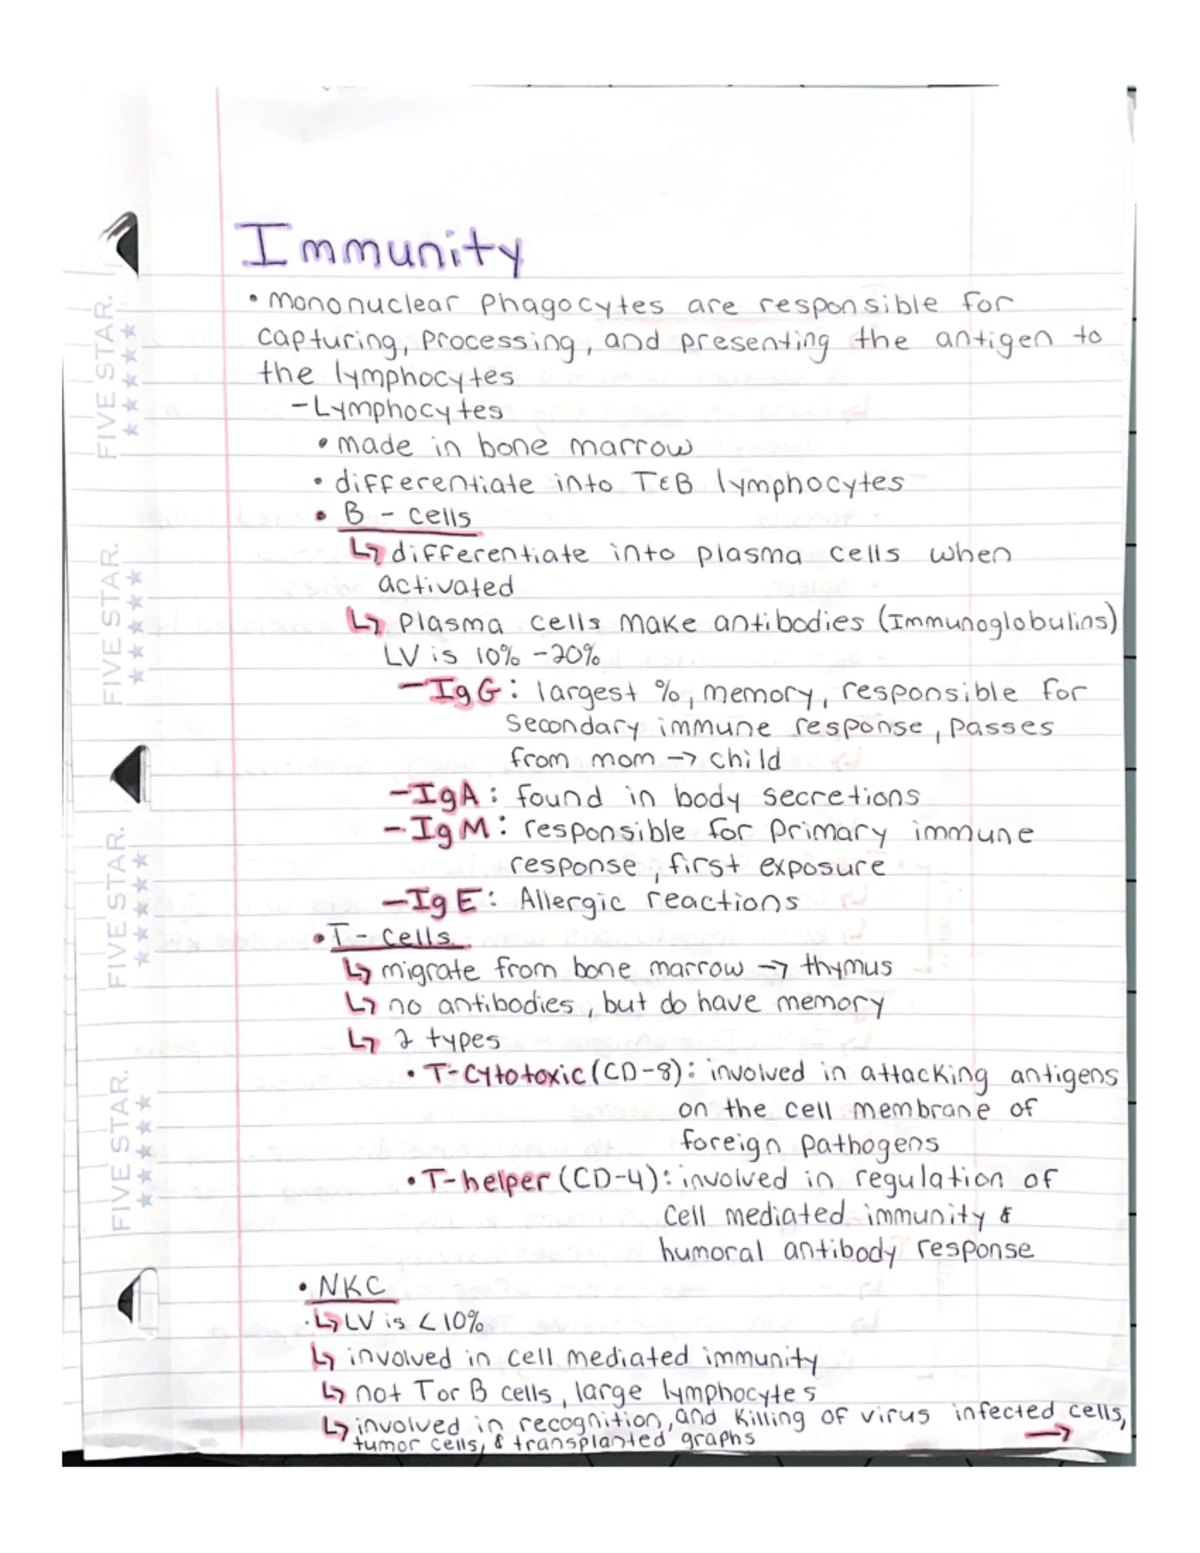 Immunity
• mononuclear phagocytes are responsible for
capturing, processing, and presenting the antigen to
the lymphocytes
- Lymphocytes
• made in bone marrow
• differentiate into T & B lymphocytes
• B - cells
↳ differentiate into plasma cells when
activated
↳ plasma cells make antibodies (Immunoglobulins)
LV is 10% - 20%
- IgG: largest %, memory, responsible for
secondary immune response, passes
from mom → child
- IgA: found in body secretions
- IgM: responsible for primary immune
response, first exposure
- IgE: Allergic reactions
• T - cells
↳ migrate from bone marrow → thymus
↳ no antibodies, but do have memory
↳ 2 types
• T-Cytotoxic (CD-8): involved in attacking antigens
on the cell membrane of
foreign pathogens
• T-helper (CD-4): involved in regulation of
cell mediated immunity &
humoral antibody response
• NKC
↳ LV is < 10%
↳ involved in cell mediated immunity
↳ not T or B cells, large lymphocytes
↳ involved in recognition, and killing of virus infected cells,
tumor cells, & transplanted graphs →
FIVE STAR.
FIVE STAR.
FIVE STAR.
FIVE STAR.